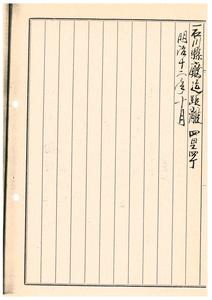 一石川縣廳迄距離 四里四丁
明治十二年十月